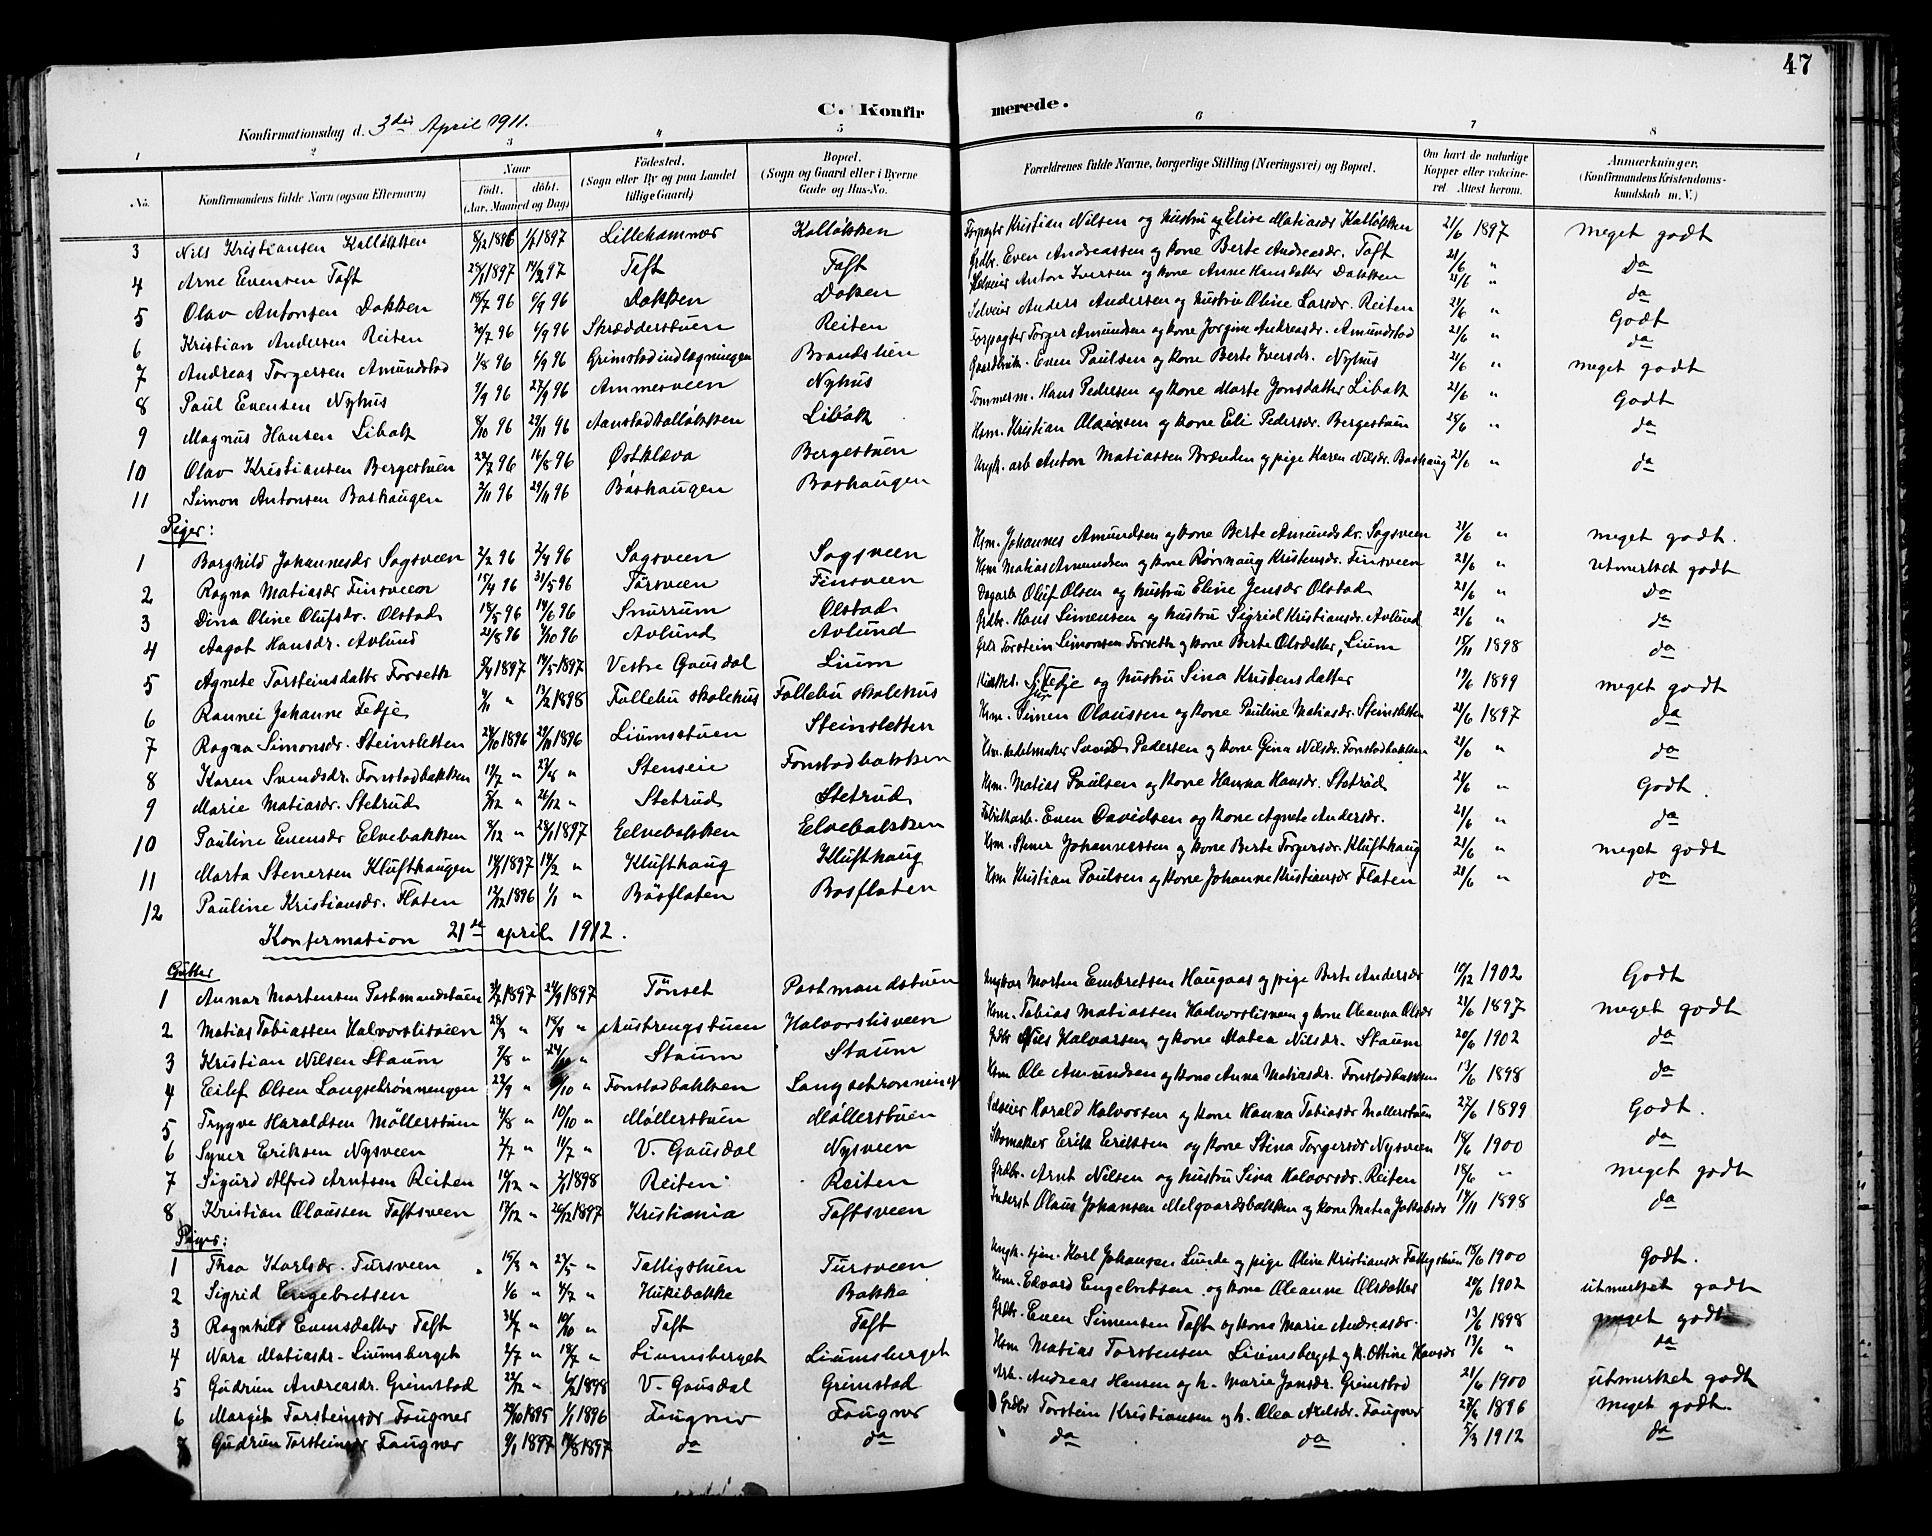 47
C. Konfirmerede.
Konfirmationsdag d. 3die April 1911.
1 2 3 4 5 6 7 8
No. Konfirmandens fulde Navn (ogsaa Efternavn) Naar født. døbt. (Aar, Maaned og Dag) Fødested. (Sogn eller By og paa Landet tillige Gaard) Bopæl. (Sogn og Gaard eller i Byerne Gade og Hus-No. Forældrenes fulde Navne, borgerlige Stilling (Næringsvei) og Bopæl. Om havt de naturlige Kopper eller vakcineret Attest herom. Anmærkninger. (Konfirmandens Kristendomskundskab m. V.)
3 Nils Kristiansen Kalløkken 8/12 1896 1/1 1897 Lillehammer Kalløkken Forpagter Kristian Nilsen og hustru Elise Matiasdr Kalløkken 21/6 1897 meget godt
4 Arne Evensen Taft 1897 14/2 97 Taft Taft Grdbr. Even Andreassen og kone Berte Andreasdr. Taft 21/6 " Da
5 Olav Antonsen Dakken 18/7 96 6/9 96 Dakken Daken Selveier Anton Iversen og kone Anne Hansdatter Dakken 21/6 " da
6 Kristian Andersen Reiten 30/7 96 6/9 96 Skrædderstuen Reiten Selveier Anders Andersen og hustru Oline Larsdr. Reiten 21/6 " Godt
7 Andreas Torgersen Amundstad 1/8 96 6/9 96 Grimstadindlægningen Brandslien Forpagter Torger Amundsen og kone Jorgine Andreasdr. Amundstad 21/6 " da
8 Paul Evensen Nyhus 7/9 96 27/9 96 Ammesveen Nyhus Gaardbruk. Even Paulsen og kone Berte Iversdr. Nyhus 21/6 " meget godt
9 Magnus Hansen Libak 8/10 96 29/11 96 Aanstadkalløkken Libak Tømmerm. Hans Pedersen og kone Marte Jonsdatter Libak 21/6 " Godt
10 Olav Kristiansen Bergestuen 22/7 96 16/8 96 Østklæva Bergestuen Hsm. Kristian Olausen og kone Eli Pedersdr. Bergestuen 25/6 " da
11 Simon Antonsen Bashaugen 2/11 96 29/11 96 Båshaugen Bashaugen Ungk. arb Anton Matiassen Brænden og pige Karen Nilsdr. Bashaug 21/6 " da
Piger:
1 Borghild Johannesdr Sagsveen 2/2 96 96 Sagsveen Sagsveen Hsm. Johannes Amundsen og kone Berte Amundsdr. Sagsveen 21/6 " meget godt.
2 Ragna Matiasdr Finsveen 15/4 96 31/5 96 Tørsveen Finsveen Hsm Matias Amundsen og kone Rønnaug Kristensdr. Finsveen 21/6 " utmerket godt
3 Dina Oline Olufsdr. Olstad 18/5 96 14/6 96 Snurrum Olstad Dagarb Oluf Olsen og hustru Eline Jensdr Olstad 21/6 " Da
4 Aagot Hansdr. Avlund 21/8 96 4/10 96 Avlund Avlund Grdbr. Hans Simensen og hustru Sigrid Kristiansdr. Avlund 21/6 " da
5 Agnete Torsteinsdatter Forseth 1897 1897 Vestre Gausdal Lium Grdr Torstein Simonsen Forseth og kone Berte Olsdatter, Lium 15/11 1898 da
6 Rannei Johanne Fedje " 13/2 1898 Follebu skolehus Follebu skolehus Fedje og hustru Sina Kristensdatter 19/6 1899 meget godt
7 Ragna Simonsdr. Steinsletten 24/10 1896 29/11 1896 Liumsstuen Steinsletten Hsm. Simen Olaussen og kone Pauline Matiasdr. Steinsletten 21/6 1897 da
8 Karen Svendsdr. Fonstadbakken 19/7 " 23/8 " Stenseie Fonstadbakken Hsm. Svend Pedersen og kone Gina Nilsdr. Fonstadbakken 21/6 " da
9 Marie Matiasdr. Stetrud 5/12 " 26/12 " Stetrud Stetrud Hsm. Matias Paulsen og kone Hanna Hansdr. Stetrud 21/6 " Godt.
10 Pauline Evensdr Elvebakken 8/12 " 1897 Eelvebakken Eelvebakken Fabrikarb. Even Davidsen og kone Agnete Andersdr. 21/6 " da
11 Marta Stenersen Klufthaugen 1897 14/2 " Klufthaug Klufthaug Hsm. Stener Johannessen og kone Berte Torgersdr. Klufthaug 21/6 " meget godt
12 Pauline Kristiansdr. Flaten 13/12 1896 1/1 " Båsflaten Basflaten Hsm Kristian Paulsen og kone Johanne Kristiansdr Flaten 21/6 " da
Konfirmation 21de april 1912.
Gutter
1 Annar Mortensen Postmandstuen 1897 24/9 1897 Tønset Postmandstuen Ungkar Morten Embretsen Haugaas og pige Berte Andersdr 19/12 1902 Godt
2 Matias Tobiassen Halvorslisveen " 18/4 " Austrengstuen Halvorslisveen Hsm. Tobias Matiassen Halvorslisveen og kone Oleanna Olsdr 21/6 1897 meget godt
3 Kristian Nilsen Staum 7/8 " " Staum Staum Grdbr Nils Halvorsen og kone Matea Nilsdr. Staum 20/6 1902 da
4 Eilef Olsen Langseterønningen 22/9 " /10 " Fonstadbakken Hsm Ole Amundsen og kone Anna Matiasdr. Fonstadbakken 13/6 1898 da
5 Trygve Haraldsen Møllerstuen 4/8 " 10/10 " Møllerstuen Møllerstuen Selveier Harald Halvorsen og kone Hanna Tobiasdr Møllerstuen 27/6 1899 Godt.
6 Syver Eriksen Nysveen 2/7 " 11/7 " V. Gausdal Nysveen Skomaker Erik Eriksen og kone Stina Torgersdr Nysveen 18/6 1900 da
7 Sigurd Alfred Arntsen Reiten 19/12 " 1898 Reiten Reiten Grdbr. Arnt Nilsen og hustru Sina Halvorsdr. Reiten 18/6 " meget godt
8 Kristian Olaussen Taftsveen 17/12 " 26/12 1897 Kristiania Taftsveen Inderst Olaus Johansen Melgaardsbakken og kone Matea Jakobsdr 14/11 1898 da
Piger:
1 Thea Karlsdr. Tursveen 15/3 " 23/5 " Fattigstuen Tursveen Ungk. tjen. Karl Johansen Lunde og pige Oline Kristiansdr Fattigstuen 18/6 1900 Godt.
2 Sigrid Engebretsen 1/6 " 4/7 " Hukibakke Bakke Hsm. Edvard Engebretsen og kone Oleanne Olsdatter 20/6 1902 utmerket godt
3 Ragnhild Evensdatter Taft 31/7 " 10/10 " Taft Taft Grdbr. Even Simensen Taft og kone Marie Andreasdr. 13/6 1898 meget godt
4 Nara Matiasdr. Liumsberget 2/7 " 18/7 " Liumsberget Liumsberget Hsm Matias Torstensen Liumsberget og k. Ottine Hansdr 13/6 " da
5 Gudrun Andreasdr. Grimstad 22/12 " 1898 V. Gausdal Grimstad Arb. Andreas Hansen og h. Marie Jansdr. Grimstad 21/6 1900 utmerket godt
6 Margit Torsteinsdr Fougner 28/10 1895 1/1 1896 Fougner Fougner Grdbr Torstein Kristiansen og h. Olea Axelsdr. Fougner 27/6 1896 meget godt.
7 Gudrun Torsteinsdr Fougner 9/1 1897 1897 da da " da da 5/3 1912 da